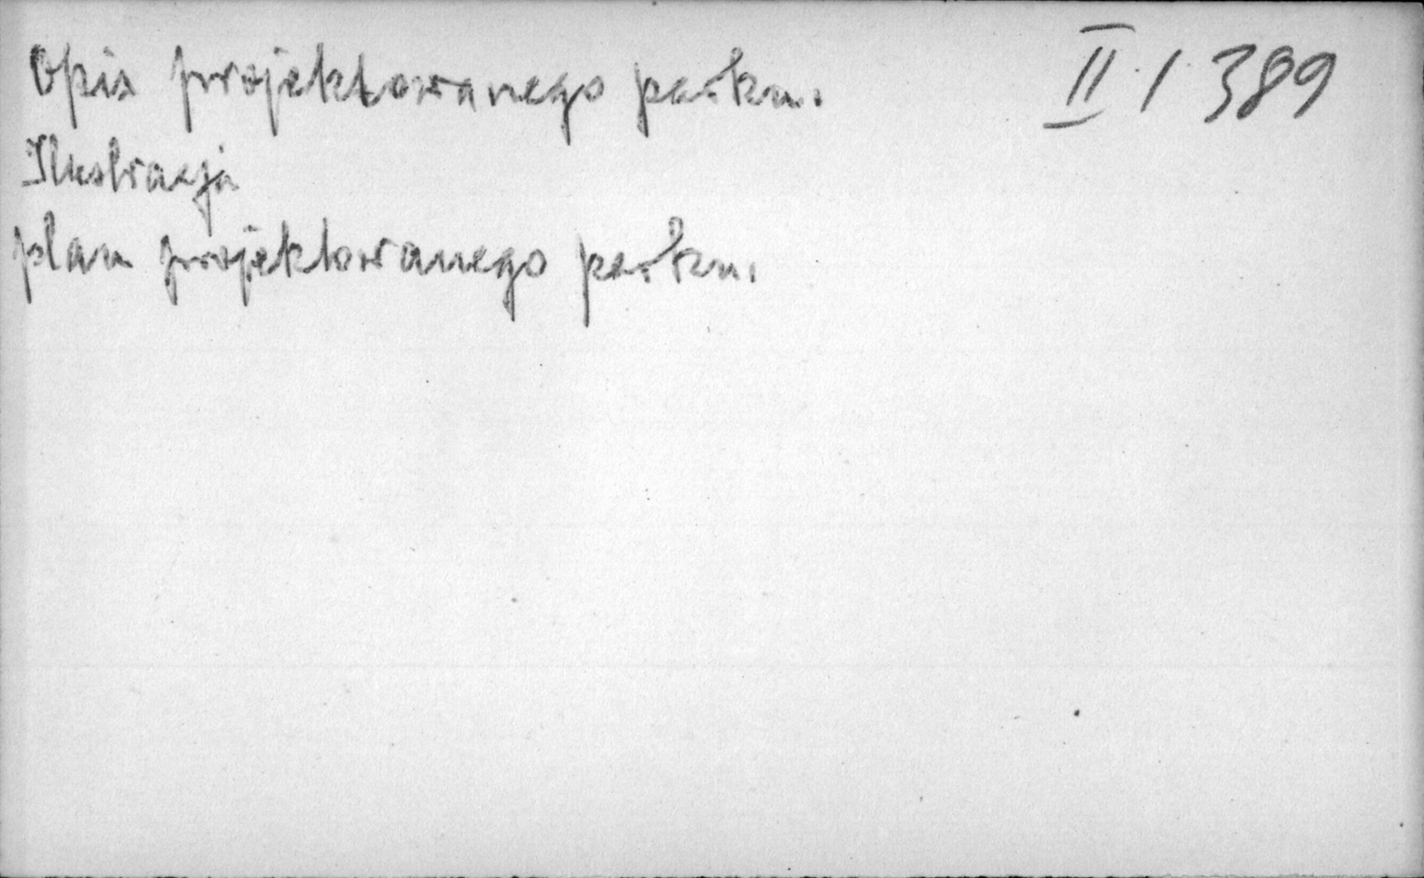 Opis projektowanego parku. II 1 389
Ilustracja
plan projektowanego parku.